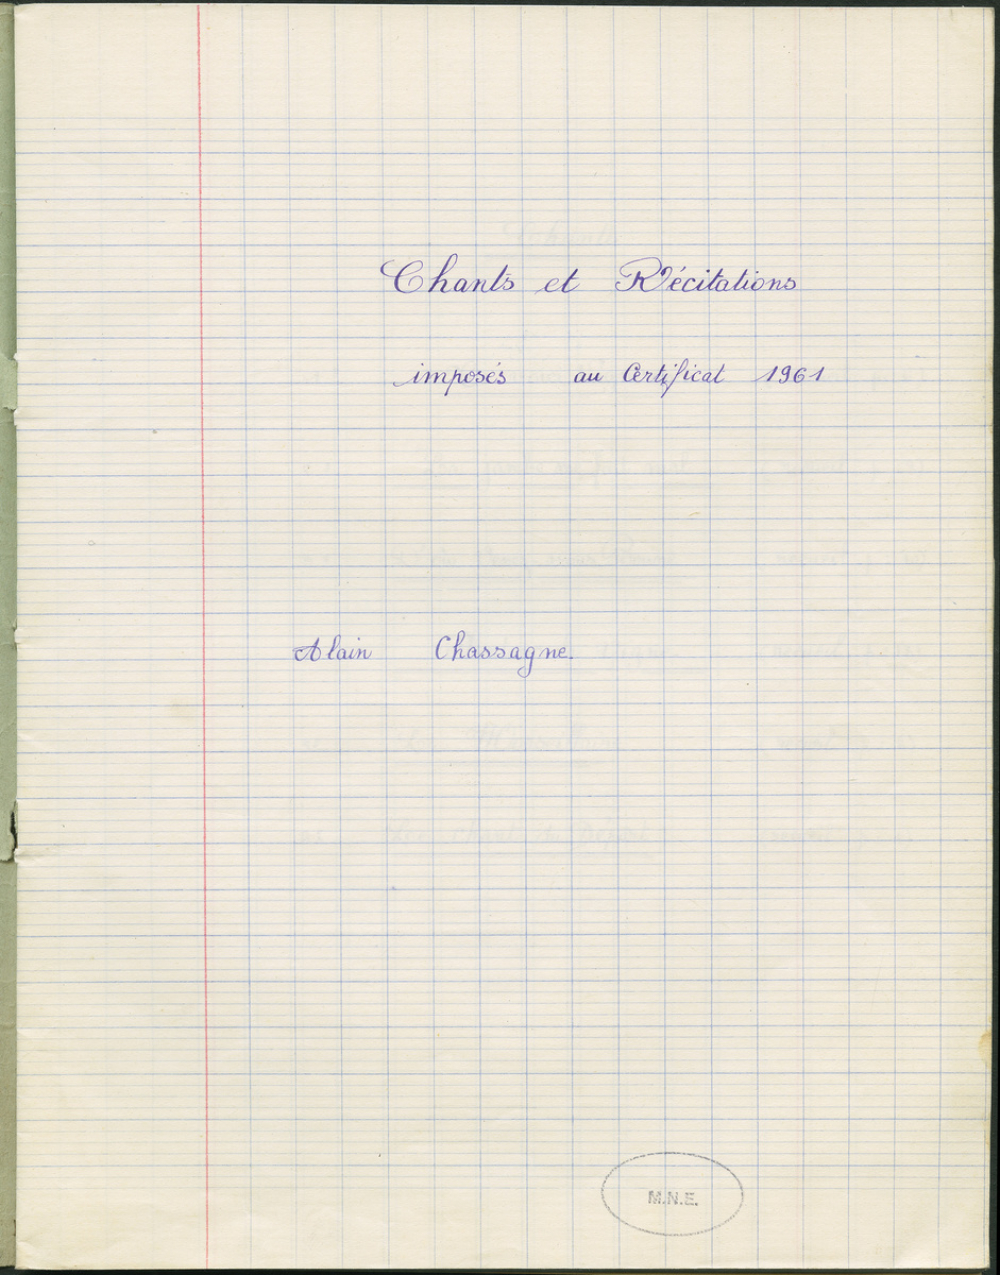 Chants et Récitations
imposés au Certificat 1961
Alain Chassagne.
M.N.E.